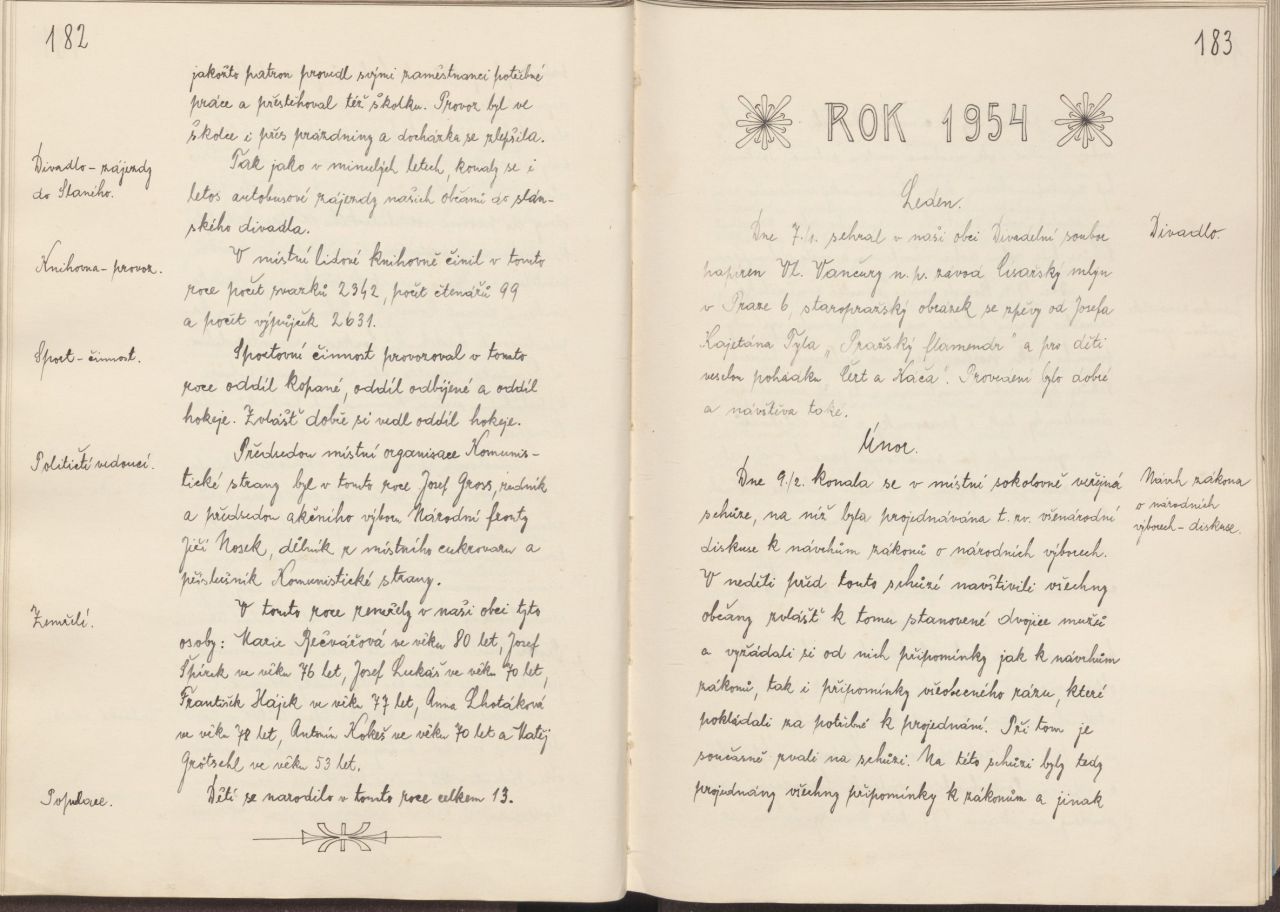 182
jakožto patron provedl svými zaměstnanci potřebné
práce a přestěhoval též školku. Provoz byl ve
školce i přes prázdniny a docházka se zlepšila.
Divadlo - zájezdy
do Slaného.
Tak jako v minulých letech, konaly se i
letos autobusové zájezdy našich občanů do slán-
ského divadla.
Knihovna - provoz.
V místní lidové knihovně činil v tomto
roce počet svazků 2342, počet čtenářů 99
a počet výpůjček 2631.
Sport - činnost.
Sportovní činnost provozoval v tomto
roce oddíl kopané, oddíl odbíjené a oddíl
hokeje. Zvlášť dobře si vedl oddíl hokeje.
Političtí vedoucí.
Předsedou místní organisace Komunis-
tické strany byl v tomto roce Josef Gross, redník
a předsedou akčního výboru Národní fronty
Jiří Nosek, dělník z místního cukrovaru a
příslušník Komunistické strany.
Zemřelí.
V tomto roce zemřely v naší obci tyto
osoby: Marie Řečvářová ve věku 80 let, Josef
Špírek ve věku 76 let, Josef Lukáš ve věku 70 let,
František Hájek ve věku 77 let, Anna Lhotáková
ve věku 78 let, Antonín Kokeš ve věku 70 let a Matěj
Grötschl ve věku 53 let.
Populace.
Dětí se narodilo v tomto roce celkem 13.
183
ROK 1954
Leden.
Divadlo.
Dne 7./1. sehrál v naší obci Divadelní soubor
papíren Vl. Vančury n. p. závod Císařský mlýn
v Praze 6, staropražský obrázek se zpěvy od Josefa
Kajetána Tyla „Pražský flamendr" a pro děti
veselou pohádku „Čert a Káča". Provedení bylo dobré
a návštěva také.
Únor.
Návrh zákona
o národních
výborech - diskuse.
Dne 9./2. konala se v místní sokolovně veřejná
schůze, na níž byla projednávána t. zv. všenárodní
diskuse k návrhům zákonů o národních výborech.
V neděli před touto schůzí navštívili všechny
občany zvlášť k tomu stanovené dvojice mužů
a vyžádali si od nich připomínky jak k návrhům
zákonů, tak i připomínky všeobecného rázu, které
pokládali za potřebné k projednání. Při tom je
současně zvali na schůzi. Na této schůzi byly tedy
projednány všechny připomínky k zákonům a jinak